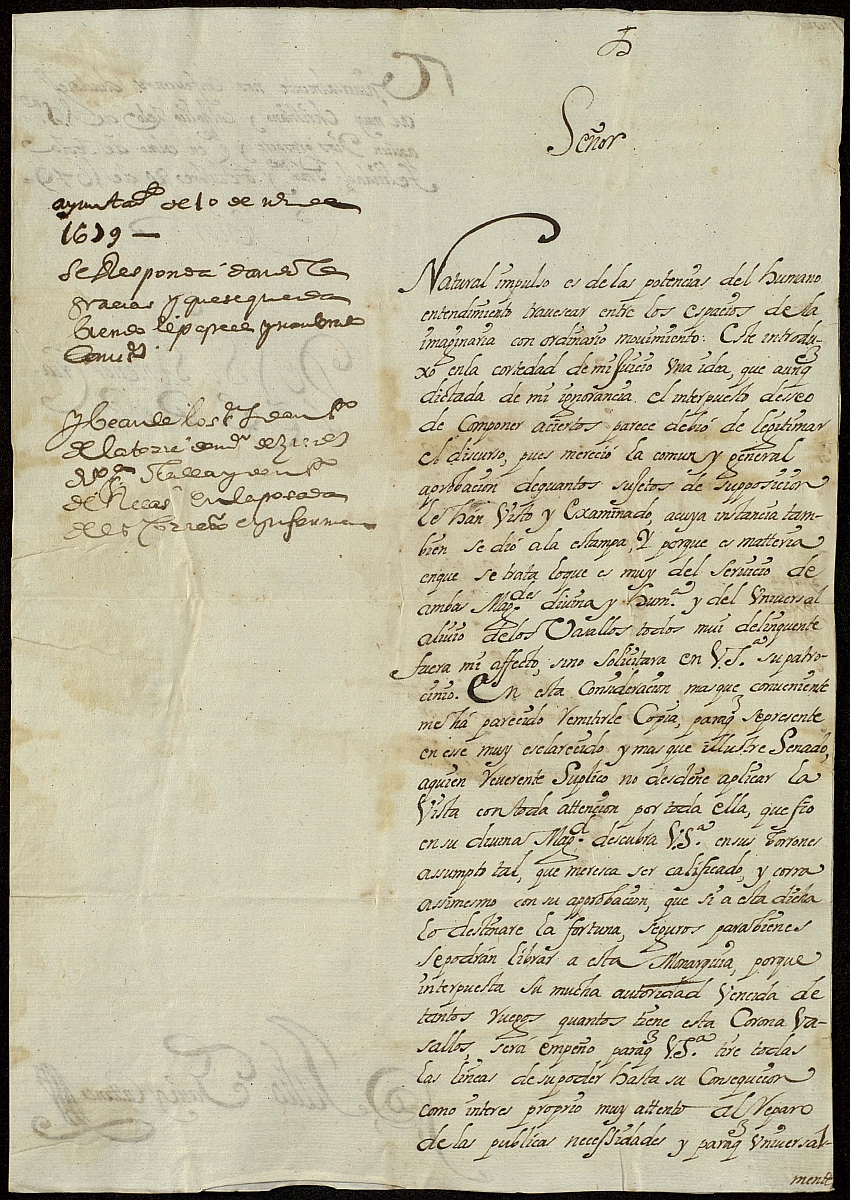 Señor
ayuntamto de 10 de
1679 —
Se Responda dandole
gracias y que se queda
viendo el papel y nombrar
Comiso
y
de la torre
de en la posada
de y informen
Natural impulso es de las potencias del humano
entendimiento travesear entre los espacios de la
imaginaria con ordinario movimiento: Este introdu-
xo en la cortedad de mi Juicio Vna idea, que aunq
dictada de mi ignorancia el interpuesto desseo
de Componer aciertos parece debió de legitimar
el discurso, pues mereció la comun y general
aprobacion de quantos sujetos de supposicion
le han Visto y Examinado, a cuya instancia tam-
bien se dió a la estampa, Y porque es matteria
en que se trata lo que es muy del Servicio de
ambas Magdes divina y huma y del Vniversal
alivio de los Vasallos todos mui delinquente
fuera mi affecto, sino solicitara en V.S.a su patro-
cinio. En esta Consideracion mas que conveniente
me há parecido remitirle Copia, paraq se presente
en esse muy esclarecido y mas que illustre Senado,
a quien reverente Suplico no desdeñe aplicar la
Vista con toda attencion por toda ella, que fio
en su divina Magd. descubra V.S.a en sus borrones
assumpto tal, que meresca ser calificado, y corra
assimesmo con su aprobacion, que si a esta dicha
lo destinare la fortuna, seguros parabienes
se podrán librar a esta Monarquia, porque
interpuesta su mucha autoridad Vencida de
tantos ruegos quantos tiene esta Corona Va-
sallos, será empeño paraq V.S.a tire todas
las lineas de su poder hasta su Consequcion
como interes proprio muy attento al reparo
de las publicas necessidades y paraq Vniversal-
mente